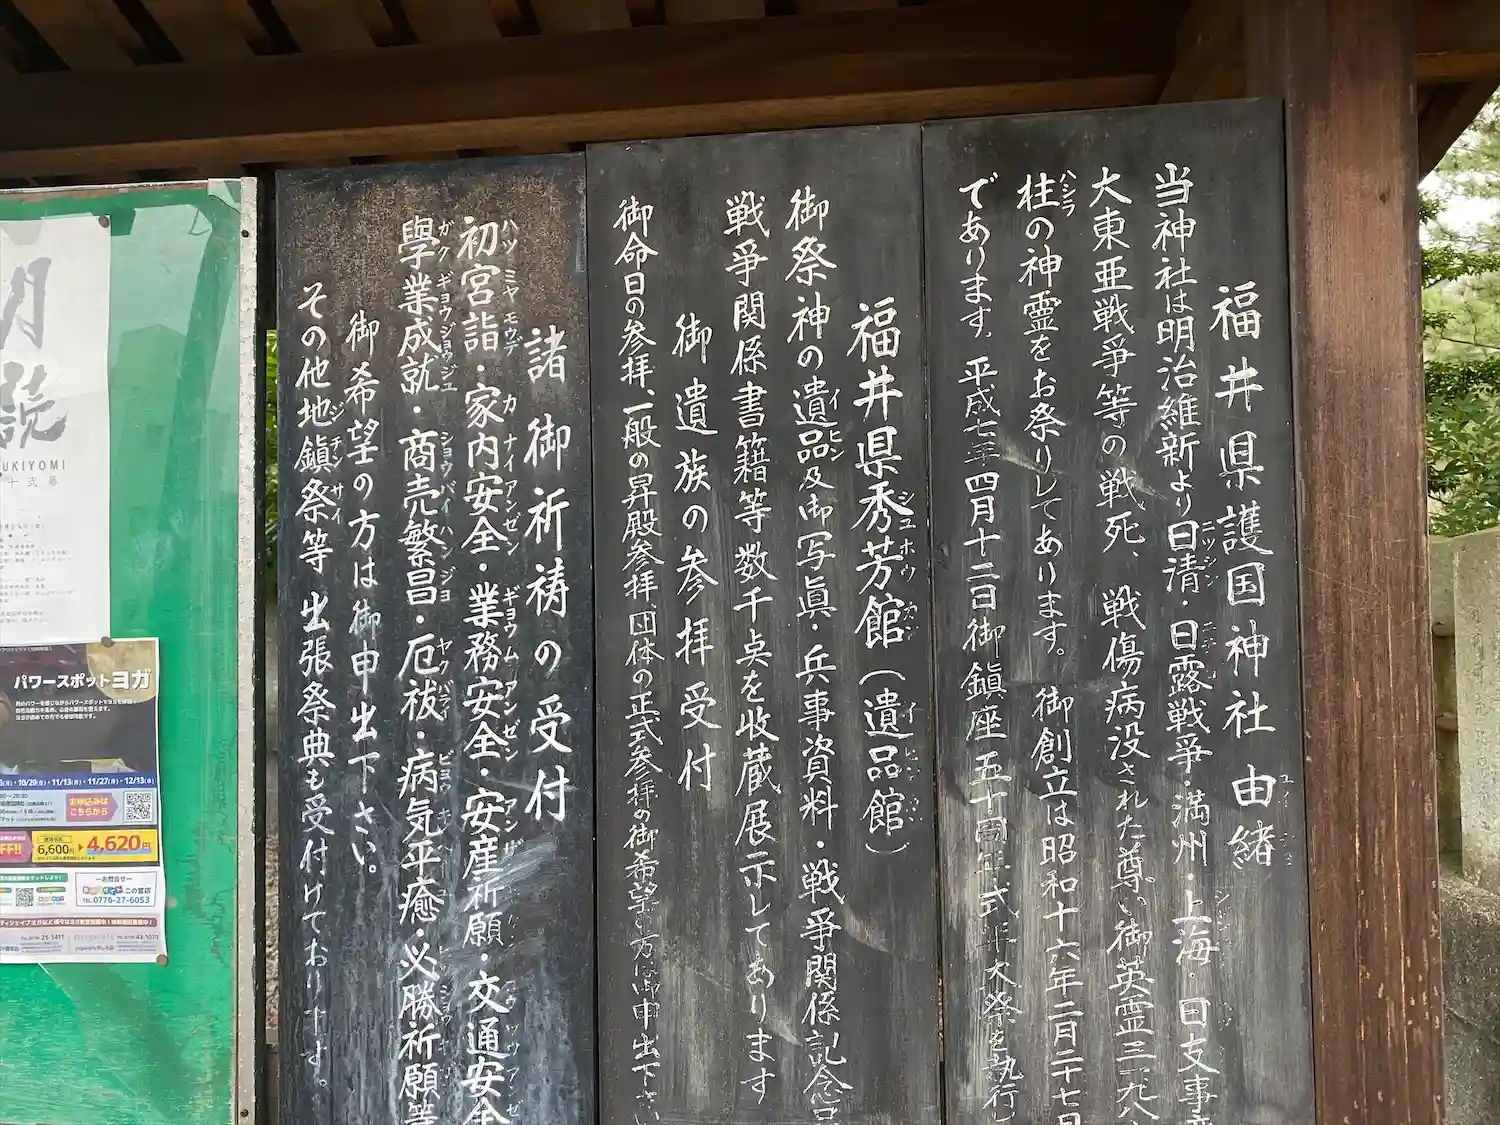 福井県護国神社由緒
当神社は明治維新より日清・日露戦争・満州・上海・日支事変
大東亜戦争等の戦死、戦傷病没された尊い御英霊三一九八
柱の神霊をお祭りしてあります。御創立は昭和十六年二月二十七日
であります。平成七年四月十二日御鎮座五十周年式年大祭を執行し
福井県秀芳館(遺品館)
御祭神の遺品及御写眞・兵事資料・戦争関係記念品
戦争関係書籍等数千点を收蔵展示してあります
御遺族の参拝受付
御命日の参拝、一般の昇殿参拝、団体の正式参拝の御希望の方は御申出下さい
諸御祈祷の受付
初宮詣・家内安全・業務安全・安産祈願・交通安全
學業成就・商売繁昌・厄祓・病気平癒・必勝祈願等
御希望の方は御申出下さい。
その他地鎮祭等出張祭典も受付けております。
UKIYOMI
パワースポットヨガ
10/29(日)・11/13(月)・11/27(月)・12/13(水)
お申込みは
こちらから
6,600円
4,620円
お問合せ
二の宮店
TEL.0776-27-6053